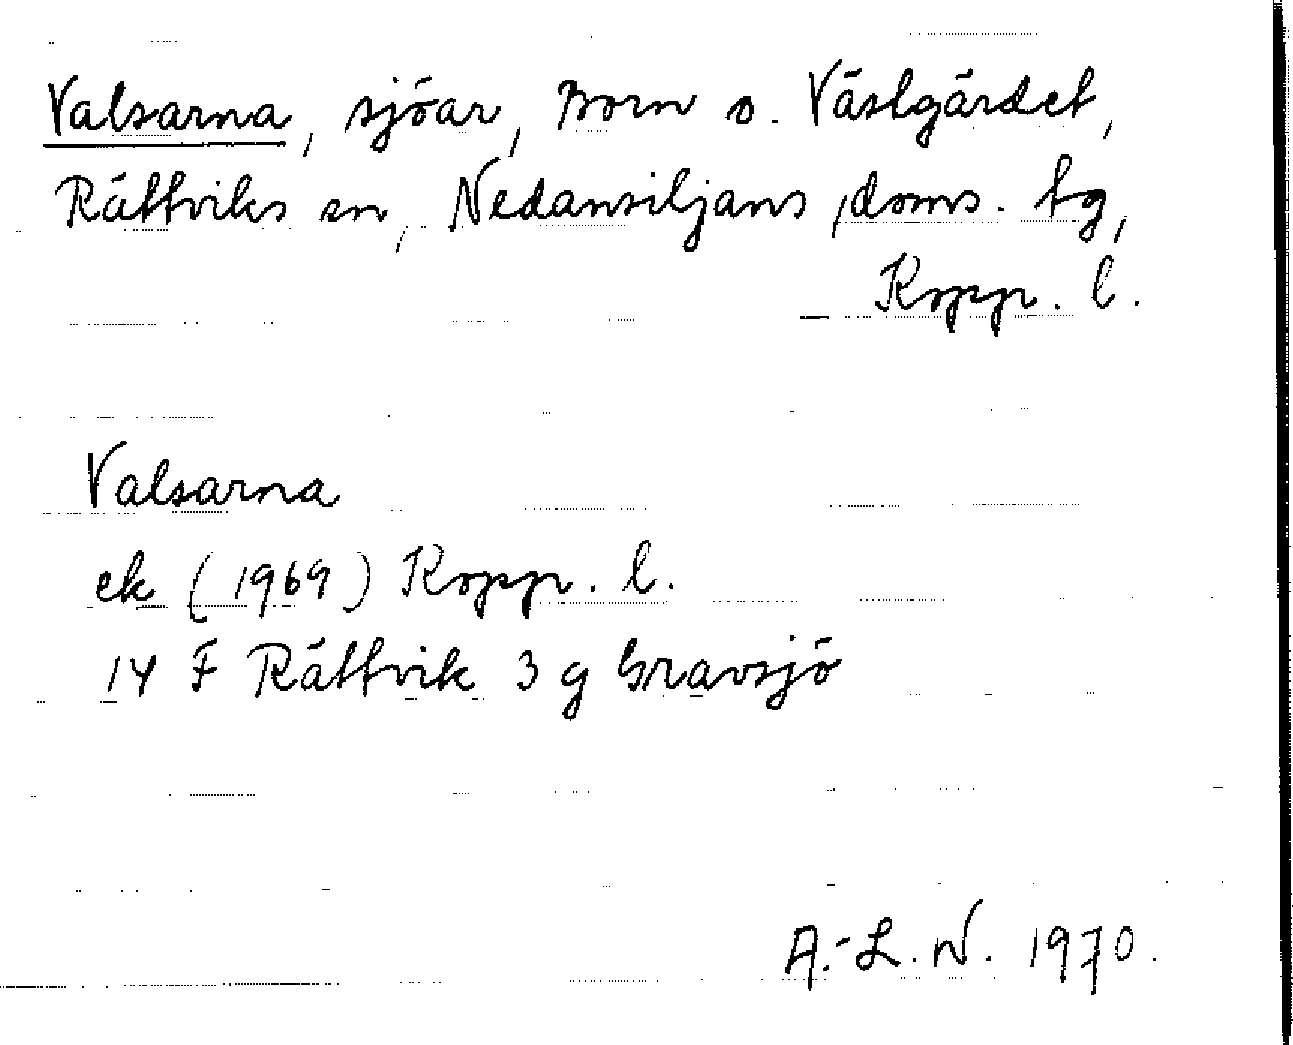 Valsarna, sjöar, Born o. Västgärdet,
Rättviks sn, Nedansiljans doms. tg,
Kopp. l.
Valsarna
ek (1969) Kopp. l.
14 F Rättvik 3 g Gravsjö
A.-L. N. 1970.